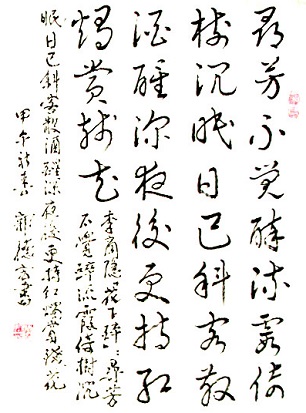 尋芳不覺醉流霞倚
樹沉眠日已斜客散
酒醒深夜後更持紅
燭賞殘花
李商隱花下醉 尋芳
不覺醉流霞倚樹沉
眠日已斜客散酒醒深夜後更持紅燭賞殘花
甲午新春 德書